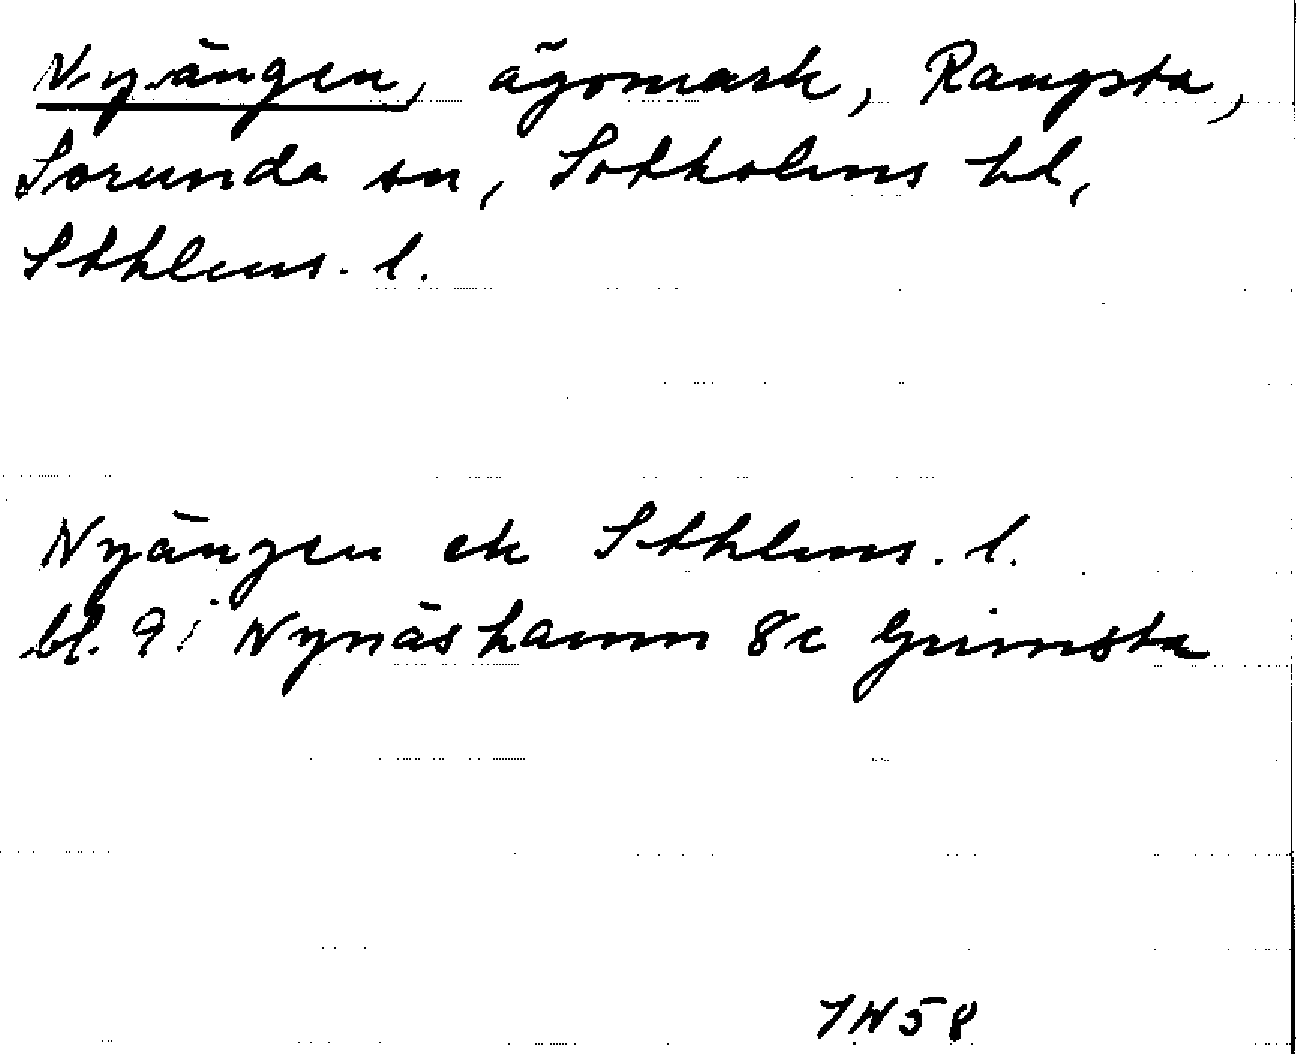 Nyängen, ägomark, Rangsta,
Sorunda sn, Sotholms hd,
Sthlms. l.
Nyängen ek Sthlms. l.
bl. 9i Nynäshamn 8c Grimsta
7N58